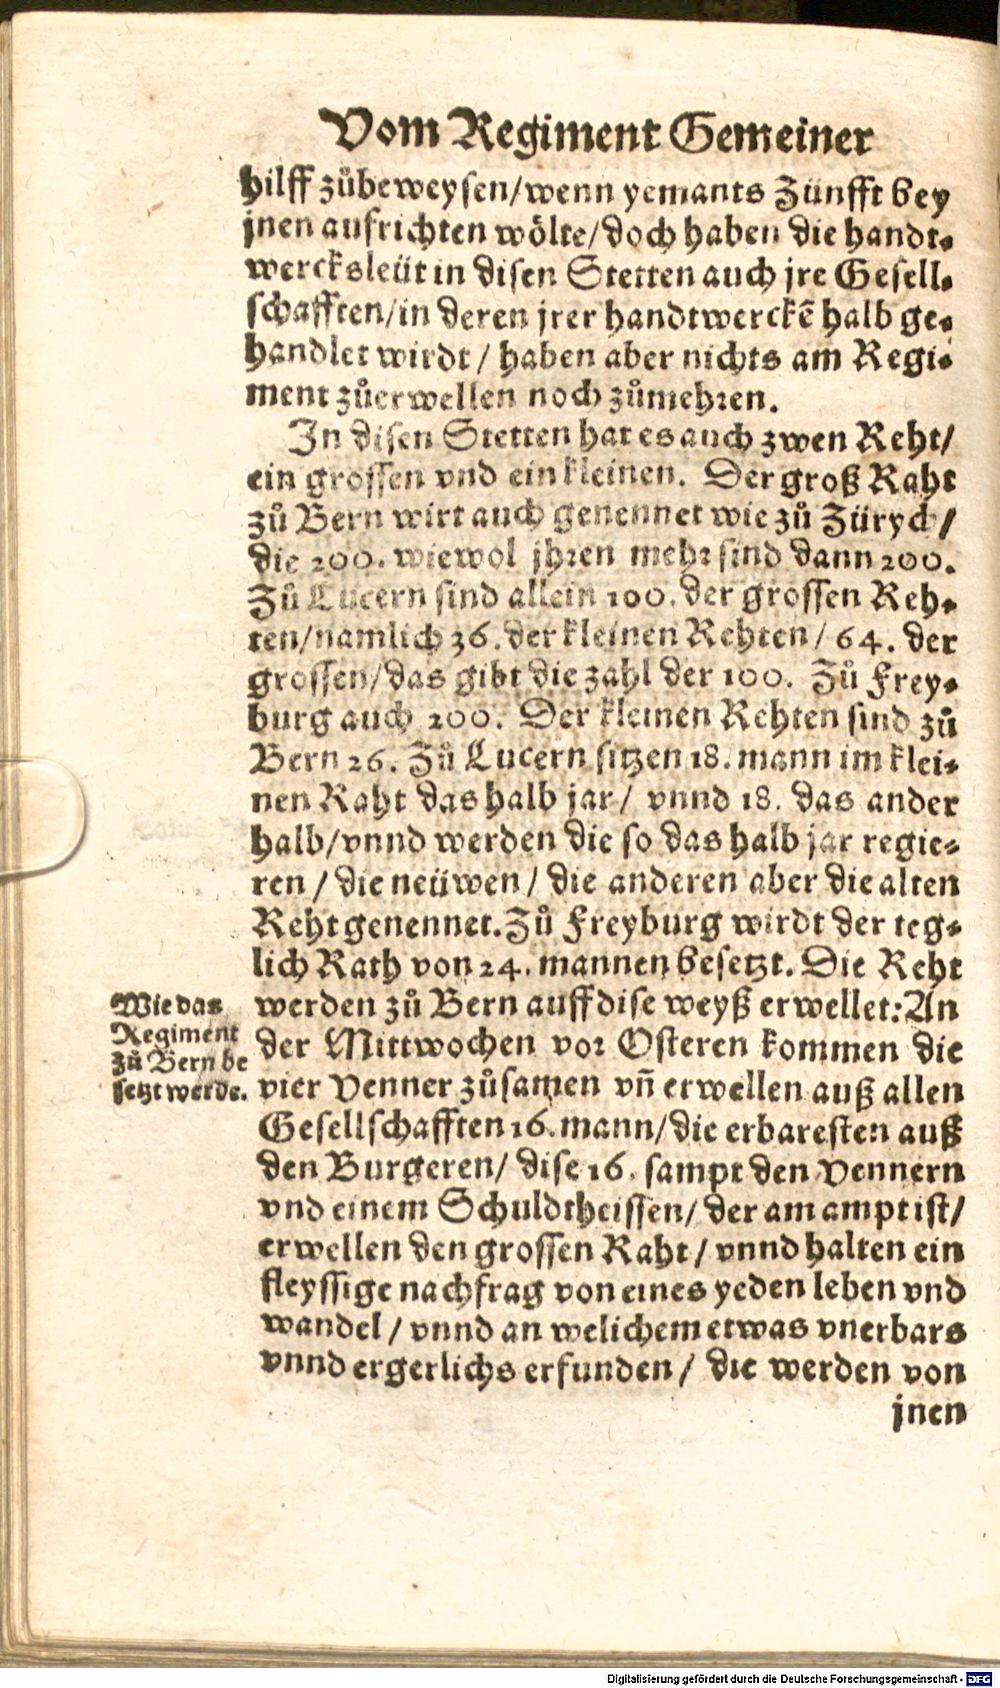 Vom Regiment Gemeiner
hilff zůbeweysen/wenn yemants Zünfft bey
jnen aufrichten wölte/doch haben die handt⸗
wercksleüt in disen Stetten auch jre Gesell⸗
schafften/in deren jrer handtwerckē halb ge⸗
handlet wirdt / haben aber nichts am Regi⸗
ment zůerwellen noch zůmehren.
In disen Stetten hat es auch zwen Reht/
ein grossen vnd ein kleinen. Der groß Raht
zů Bern wirt auch genennet wie zů Zürych/
die 200. wiewol jhren mehr sind dann 200.
Zů Lucern sind allein 100. der grossen Reh⸗
ten/namlich 36. der kleinen Rehten / 64. der
grossen/das gibt die zahl der 100. Zů Frey⸗
burg auch 200. Der kleinen Rehten sind zů
Bern 26. Zů Lucern sitzen 18. mann im klei⸗
nen Raht das halb jar / vnnd 18. das ander
halb/vnnd werden die so das halb jar regie⸗
ren / die neüwen / die anderen aber die alten
Reht genennet. Zů Freyburg wirdt der teg⸗
lich Rath von 24. mannen besetzt. Die Reht
werden zů Bern auff dise weyß erwellet: An
der Mittwochen vor Osteren kommen die
vier Venner zůsamen vñ erwellen auß allen
Gesellschafften 16. mann/die erbaresten auß
den Burgeren/ dise 16. sampt den Vennern
vnd einem Schuldtheissen/ der am ampt ist/
erwellen den grossen Raht / vnnd halten ein
fleyssige nachfrag von eines yeden leben vnd
wandel / vnnd an welichem etwas vnerbars
vnnd ergerlichs erfunden / die werden von
jnen
Wie das
Regiment
zů Bern be
setzt werde.
Digitalisierung gefördert durch die Deutsche Forschungsgemeinschaft - DFG